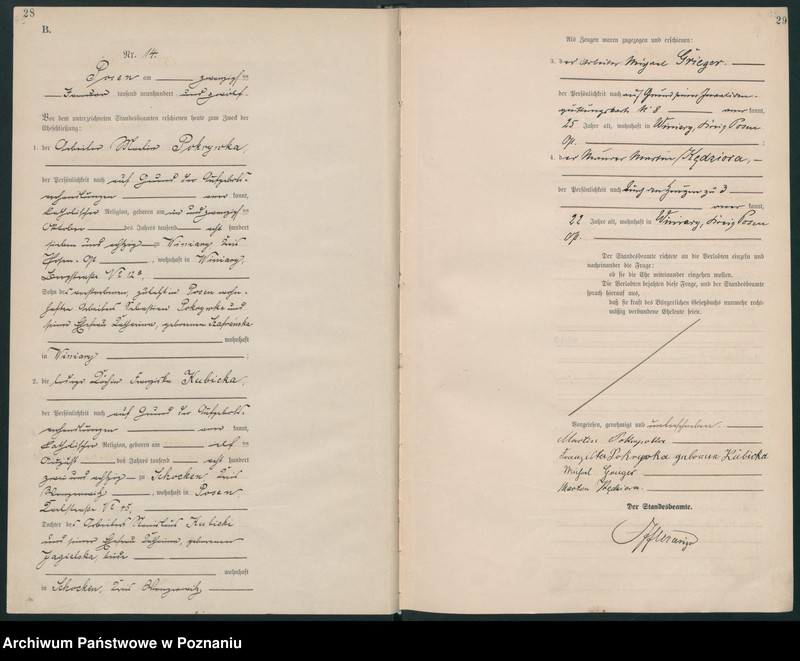 28
B.
Nr. 14.
Posen am zwanzigsten
Januar tausend neunhundert und zwölf.
Vor dem unterzeichneten Standesbeamten erschienen heute zum Zweck der
Eheschließung:
1. der Arbeiter Martin Pokrywka,
der Persönlichkeit nach auf Grund der Aufgebots-
verhandlungen kannt,
katholischer Religion, geboren am ein und zwanzigsten
Oktober des Jahres tausend acht hundert
sieben und achtzig zu Winiary, Kreis
Posen-Ost, wohnhaft in Winiary,
Bergstraße No 12a,
Sohn des verstorbenen, zuletzt in Posen wohn-
haften Arbeiters Sebastian Pokrywka und
seiner Ehefrau Katharina, geborenen Szafranska
wohnhaft
in Winiary ;
2. die ledige Köchin Franziska Kubicka,
der Persönlichkeit nach auf Grund der Aufgebots-
verhandlungen kannt,
katholischer Religion, geboren am elften
August des Jahres tausend acht hundert
zwei und achtzig zu Schocken, Kreis
Wongrowitz, wohnhaft in Posen,
No 15,
Tochter des Arbeiters Stanislaus Kubicki
und seiner Ehefrau Katharina, geborenen
Jagielska, beide
wohnhaft
in Schocken, Kreis Wongrowitz,
29
Als Zeugen waren zugezogen und erschienen:
3. der Arbeiter Michael Grieger.
der Persönlichkeit nach auf Grund seiner Invaliden-
quittungskarte No 8 kannt,
25 Jahre alt, wohnhaft in Winiary, Kreis Posen
Ost. ;
4. der Maurer Martin Kędziora,
der Persönlichkeit nach durch den Zeugen zu 3
kannt,
22 Jahre alt, wohnhaft in Winiary, Kreis Posen
Ost.
Der Standesbeamte richtete an die Verlobten einzeln und
nacheinander die Frage:
ob sie die Ehe miteinander eingehen wollen.
Die Verlobten bejahten diese Frage, und der Standesbeamte
sprach hierauf aus,
daß sie kraft des Bürgerlichen Gesetzbuchs nunmehr recht-
mäßig verbundene Eheleute seien.
Vorgelesen, genehmigt und unterschrieben.
Martin Pokrywka
Franziska Pokrywka geborene Kubicka
Michael Grieger
Martin Kędziora.
Der Standesbeamte.
Archiwum Państwowe w Poznaniu